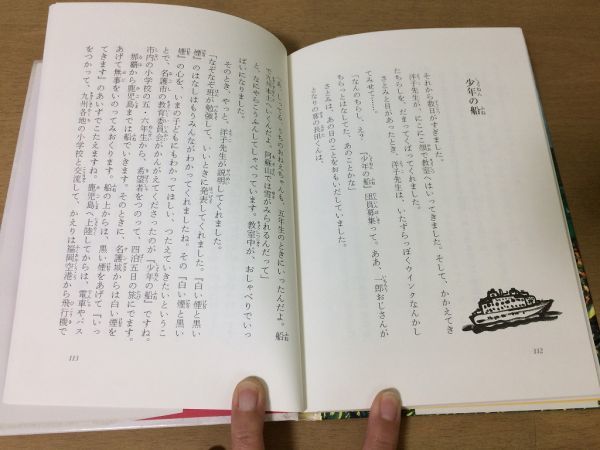 少年の船
それから数日がすぎました。
洋子先生が、にこにこ顔で教室へはいってきました。そして、かかえてき
たちらしを、だまってくばってくれました。
さとみは目があったとき、洋子先生は、いたずらっぽくウインクなんかし
てみせて……。
「なんのちらし、え？　『少年の船』団員募集って。ああ、一郎おじさんが
ちらっとはなしてた、あのことかな」
さとみは、あの日のことをおもいだしていました。
となりの席の長田くんは、
112
で九州へいくんだよ。阿蘇山では雪がみられるんだって」
と、なにやらこうふんしてしゃべっています。教室中が、おしゃべりでいっ
ぱいになりました。
そのとき、やっと、洋子先生が説明してくれました。
「なぞなぞ班が勉強して、いいときに発表してくれました。『白い煙と黒い
煙』のはなしはもうみんながわかってくれましたね。その『白い煙と黒い
煙』の心を、いまの子どもにもわかってほしい、つたえていきたいというこ
とで、名護市の教育委員会がかんがえてくださったのが『少年の船』ですね。
市内の小学校の五・六年生から、希望者をつのって、四泊五日の旅にでます。
那覇から鹿児島までは船でいきます。船の上からは、黒い煙をあげて『いっ
てきます』のあいずでこたえますね。鹿児島へ上陸してからは、電車やバス
をつかって、九州各地の小学校と交流して、かえりは福岡空港から飛行機で
113